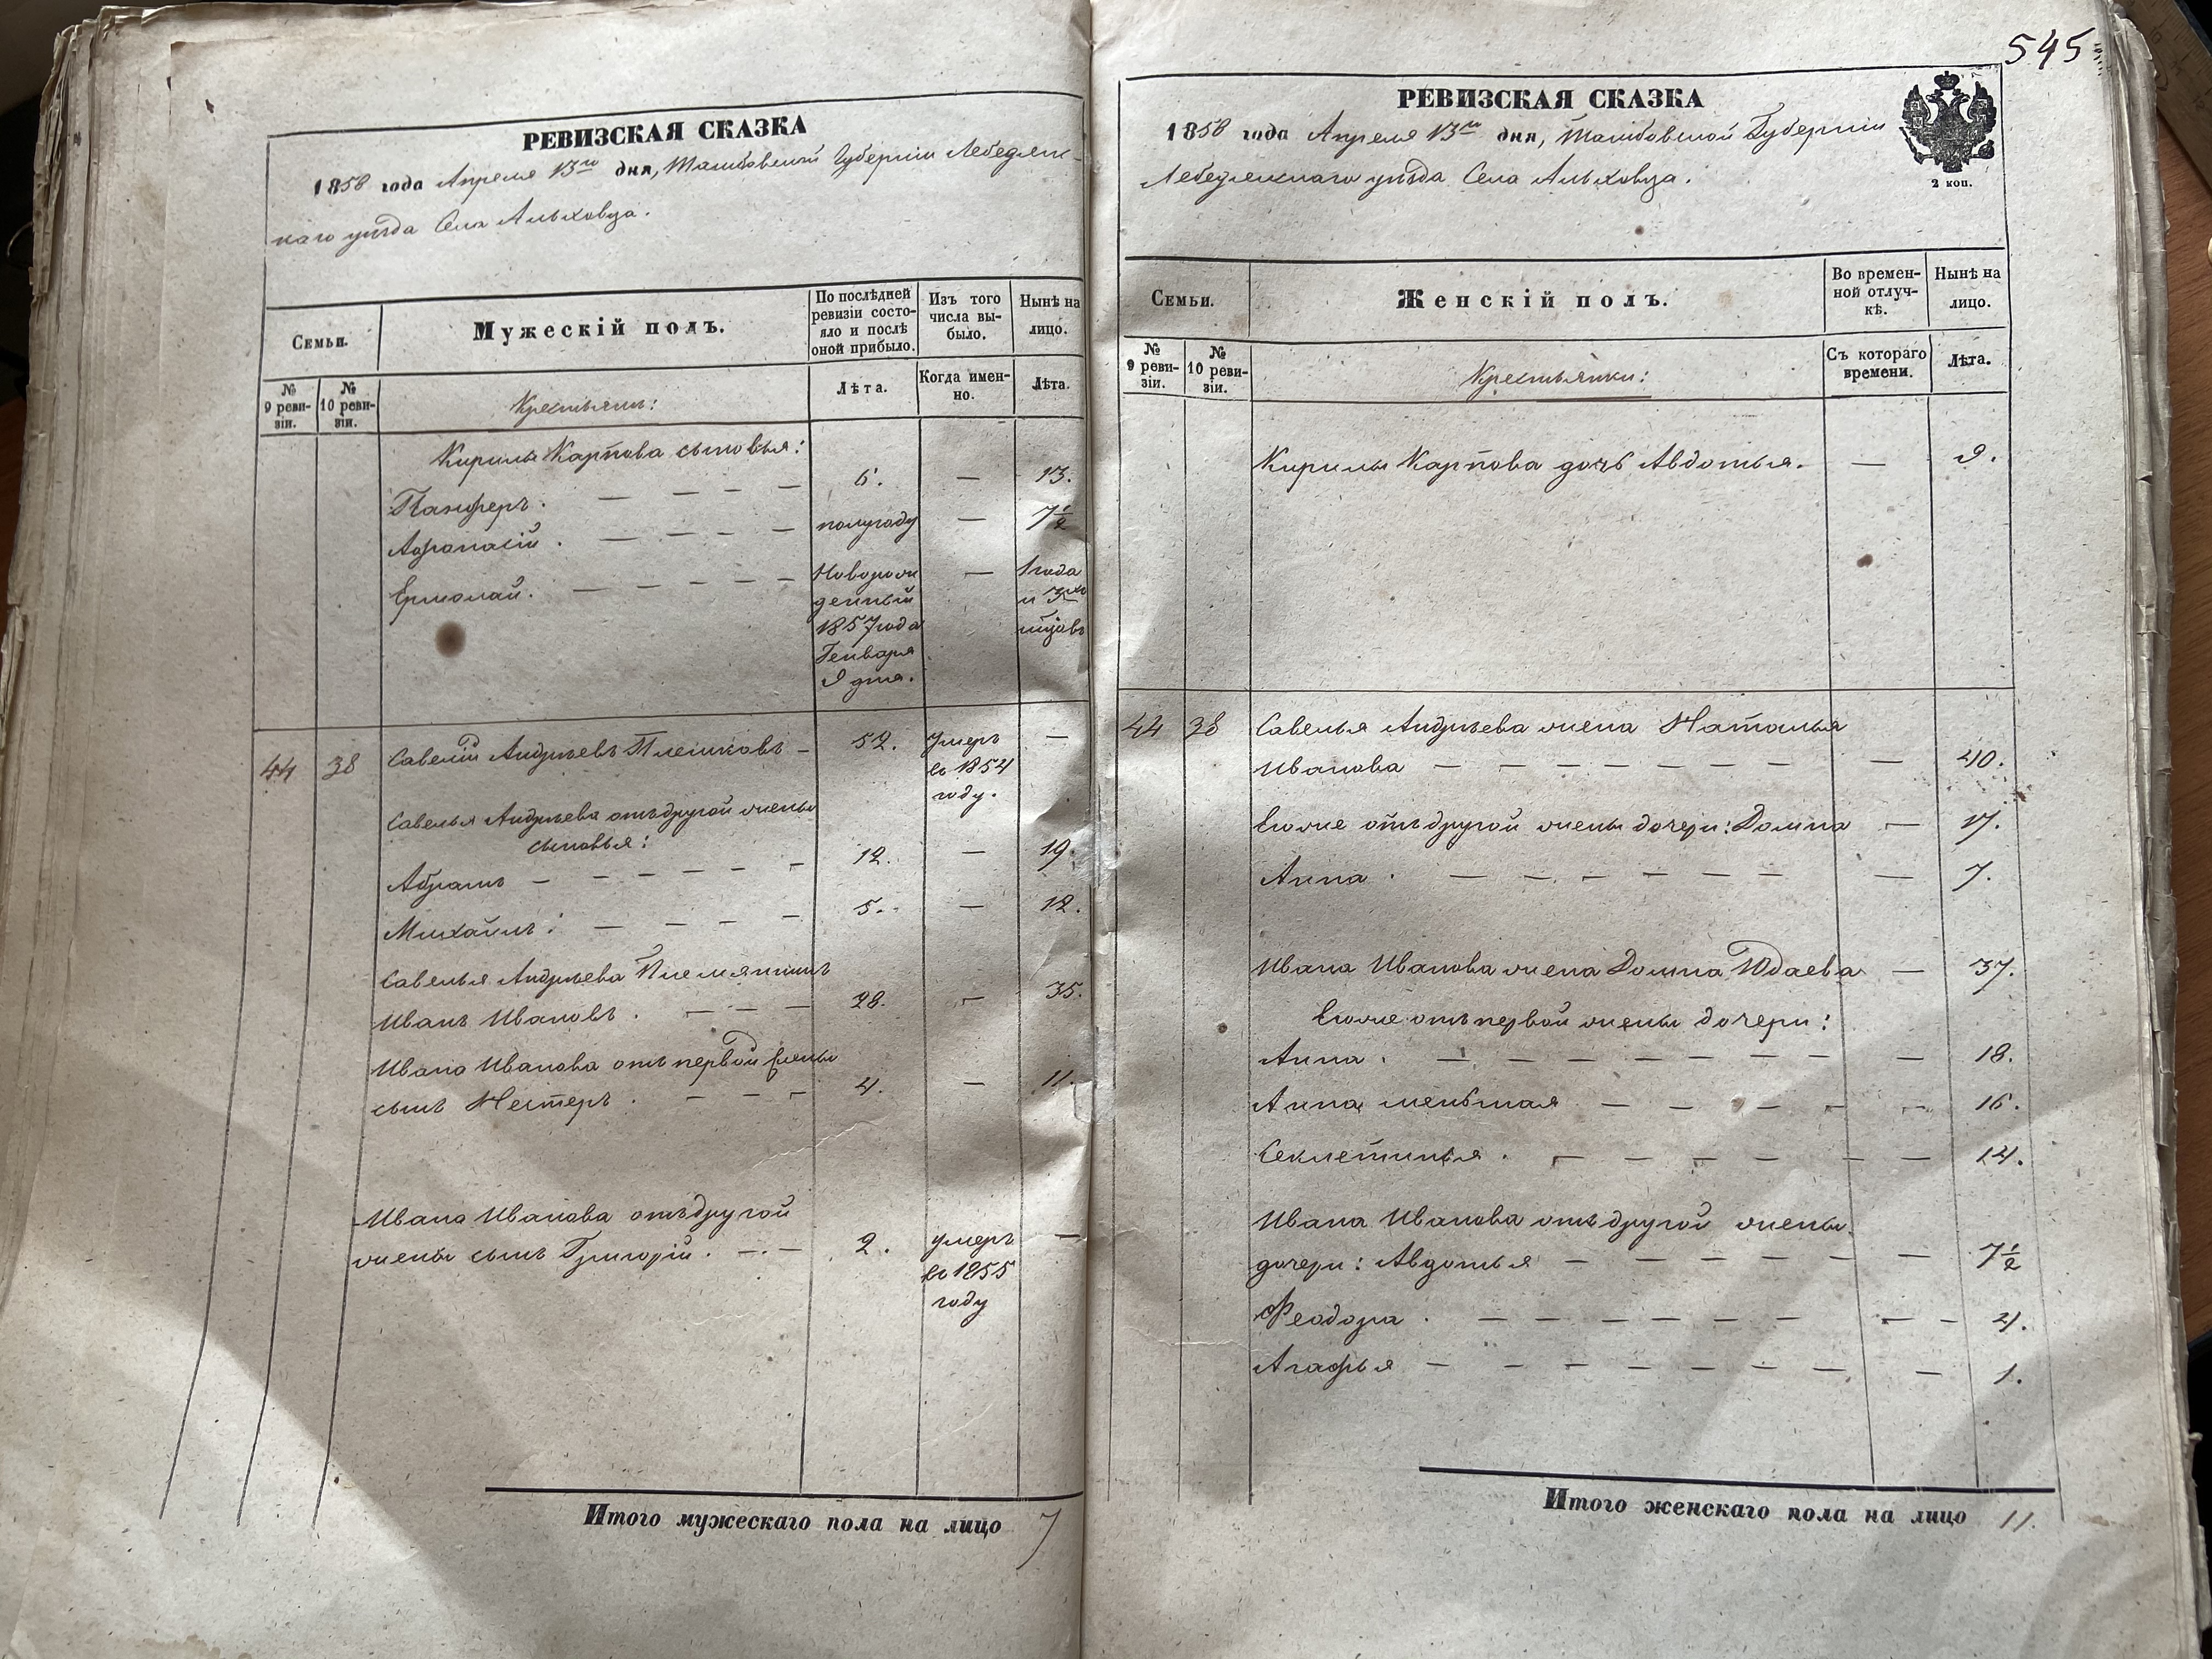 РЕВИЗСКАЯ СКАЗКА
1858 года Апреля 13го дня, Тамбовской Губернии Лебедянс-
каго уѣзда Села Альховца.
Семьи.
Мужескій полъ.
По послѣдней
ревизіи состо-
яло и послѣ
оной прибыло.
Изъ того
числа вы-
было.
Нынѣ на
лицо.
№
9 реви-
зіи.
№
10 реви-
зіи.
Крестьяне:
Лѣта.
Когда имен-
но.
Лѣта.
Кирилы Карпова сыновья:
Панферъ. 6. — 13.
Афонасій. полугоду — 7½
Ермолай. Новорож — 1 года
денный и 3хъ
1857 года мѣцовъ
Генваря
9 дня.
44 38 Савелій Андрѣевъ Плешковъ — 52. умеръ —
въ 1854
году.
Савелья Андрѣева отъ другой жены
сыновья:
Абрамъ 12. — 19.
Михайлъ: 5. — 12.
Савелья Андрѣева Племянникъ
Иванъ Ивановъ. 28. — 35.
Ивана Иванова отъ первой жены
сынъ Нестеръ. 4. — 11.
Ивана Иванова отъ другой
жены сынъ Григорій. 2. умеръ —
въ 1855
году
Итого мужескаго пола на лицо 7
545
РЕВИЗСКАЯ СКАЗКА
1858 года Апреля 13го дня, Тамбовской Губерніи
Лебедянскаго уѣзда Села Альховца.
2 коп.
Семьи.
Женскій полъ.
Во времен-
ной отлуч-
кѣ.
Нынѣ на
лицо.
№
9 реви-
зіи.
№
10 реви-
зіи.
Крестьянки:
Съ котораго
времени.
Лѣта.
Кирилы Карпова дочь Авдотья. — 9.
44 38 Савелья Андрѣева жена Наталья
Иванова — 40.
Ево же отъ другой жены дочери: Домна — 17.
Анна. — 7.
Ивана Иванова жена Домна Юдаева — 37.
Ево же отъ первой жены дочери:
Анна. — 18.
Анна меньшая — 16.
Секлетинья. — 14.
Ивана Иванова отъ другой жены
дочери: Авдотья — 7½
Феодора. — 4.
Агафья — 1.
Итого женскаго пола на лицо 11.